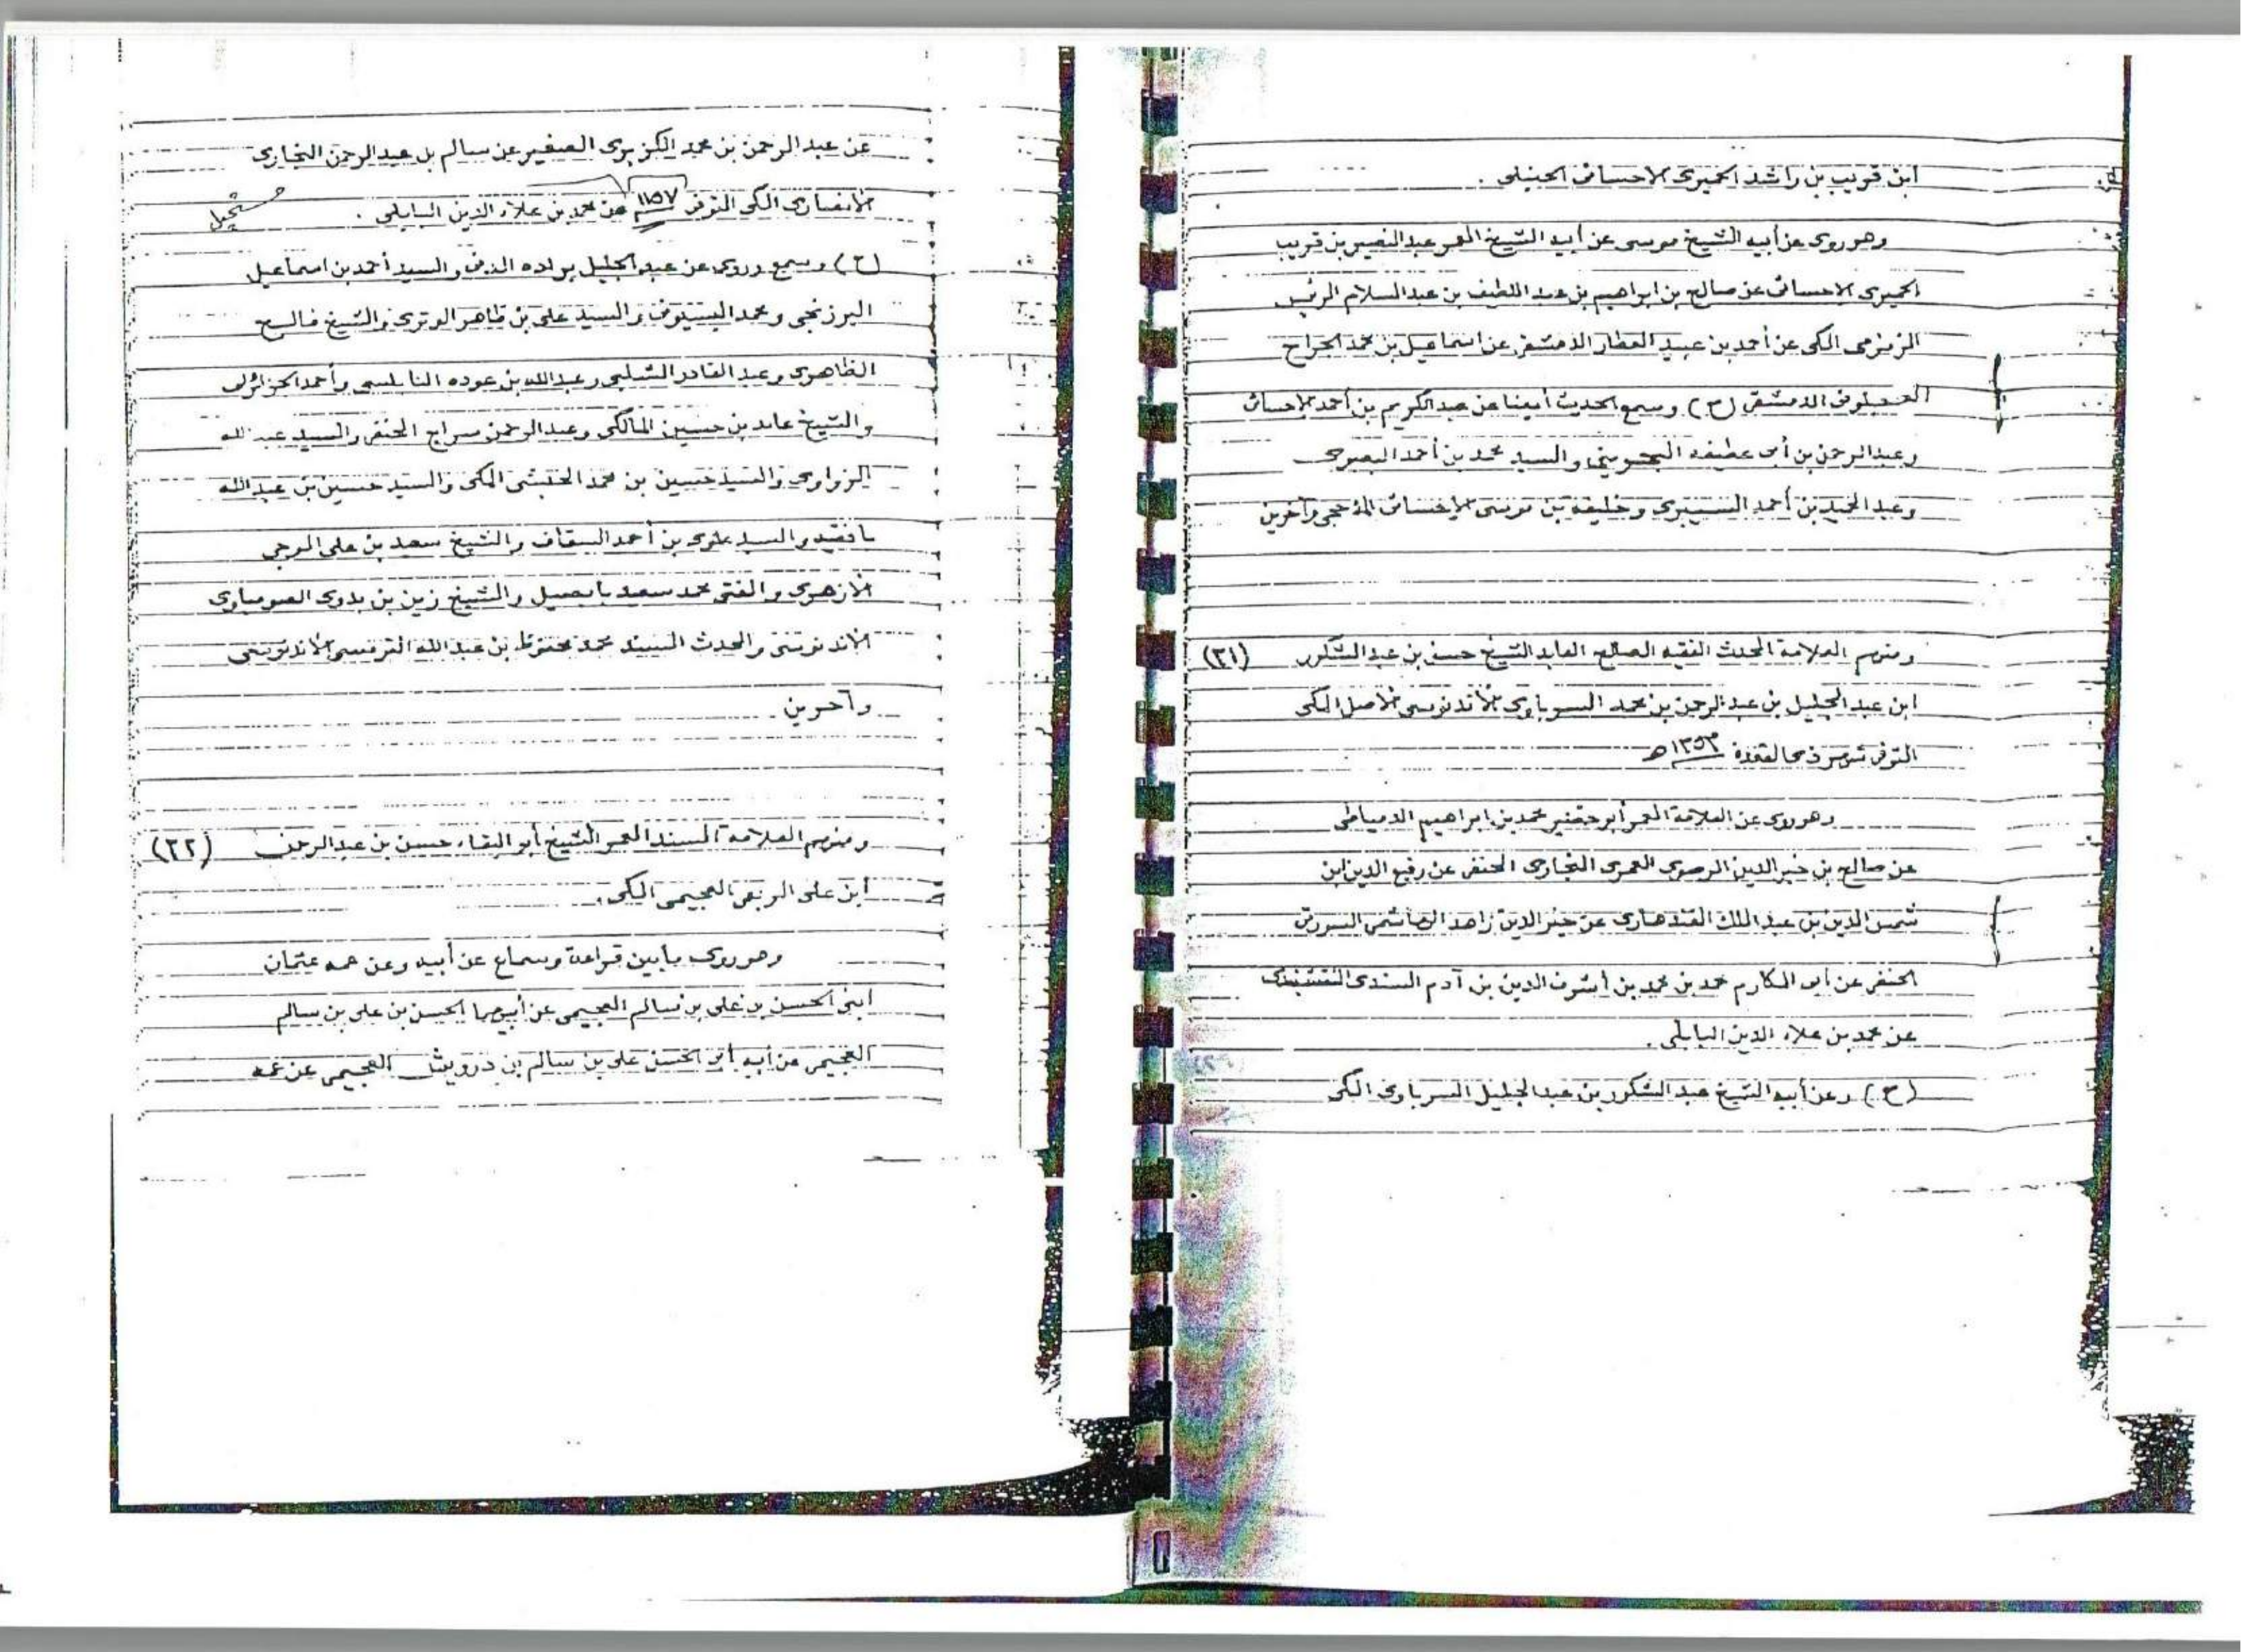 ابن قريب بن راشد الحميرى الاحسائى الحنبلى .
وهو روى عن أبيه الشيخ موسى عن أبيه الشيخ المعمر عبد النصير بن قريب
الحميرى الاحسائى عن صالح بن ابراهيم بن عبد اللطيف بن عبد السلام الرئيس
الزمزمى المكى عن أحمد بن عبيد العطار الدمشقى عن اسماعيل بن محمد الجراح
العجلونى الدمشقى (ح) وسمع الحديث أيضا عن عبد الكريم بن أحمد الاحسائى
وعبد الرحمن بن أبى عطيفه والسيد محمد بن أحمد البصرى
وعبد الحميد بن أحمد وخليفه بن موسى الاحسائى وآخرين
(٢١) ومنهم العلامة المحدث الفقيه الصالح العابد الشيخ حسن بن عبد الشكور
ابن عبد الجليل بن عبد الرحمن بن محمد السوربايوى الأندنوسى الاصل المكى
المتوفى شهر ذى القعدة ١٣٥٣ هـ
وهو روى عن العلامة المعمر أبو خضير محمد بن ابراهيم الدمياطى
عن صالح بن خير الدين الرضوى العمرى البخارى الحنفى عن رفيع الدين ابن
شمس الدين بن عبد الملك القندهارى عن خير الدين زاهد الهاشمى السورتى
الحنفى عن أبو المكارم محمد بن محمد بن أشرف الدين بن آدم السندى النقشبندى
عن محمد بن علاء الدين البابلى .
(ح) وعن أبيه الشيخ عبد الشكور بن عبد الجليل السربايوى المكى
عن عبد الرحمن بن محمد الكزبرى الصغير عن سالم بن عبد الرحمن البخارى
الانصارى المكى المتوفى ١١٥٧ عن محمد بن علاء الدين البابلى . مستحيل
(ح) وسمع وروى عن عبد الجليل براده المدنى والسيد أحمد بن اسماعيل
البرزنجى ومحمد البسيونى والسيد على بن ظاهر الوترى والشيخ فالح
الظاهرى وعبد القادر الشلبى وعبد الله بن عوده النابلسى وأحمد الجزائرلى
والشيخ عابد بن حسين المالكى وعبد الرحمن سراج الحنفى والسيد عبد الله
الزواوى والسيد حسين بن محمد الحبشى المكى والسيد حسين بن عبد الله
بافقيه والسيد علوى بن أحمد السقاف والشيخ سعد بن على الموجى
الازهرى والمفتى محمد سعيد بابصيل والشيخ زين بن بدوى الصومباوى
الاندنوسى والمحدث السيد محمد محفوظ بن عبد الله الترمسى الاندنوسى
وآخرين .
(٢٢) ومنهم العلامة المسند المعمر الشيخ أبو البقاء حسن بن عبد الرحمن
ابن على الربعى العجيمى المكى .
وهو روى ما بين قراءة وسماع عن أبيه وعن عمه عثمان
ابنى الحسن بن على بن سالم العجيمى عن أبيهما الحسن بن على بن سالم
العجيمى عن أبيه أبى الحسن على بن سالم بن درويش العجيمى عن عمه